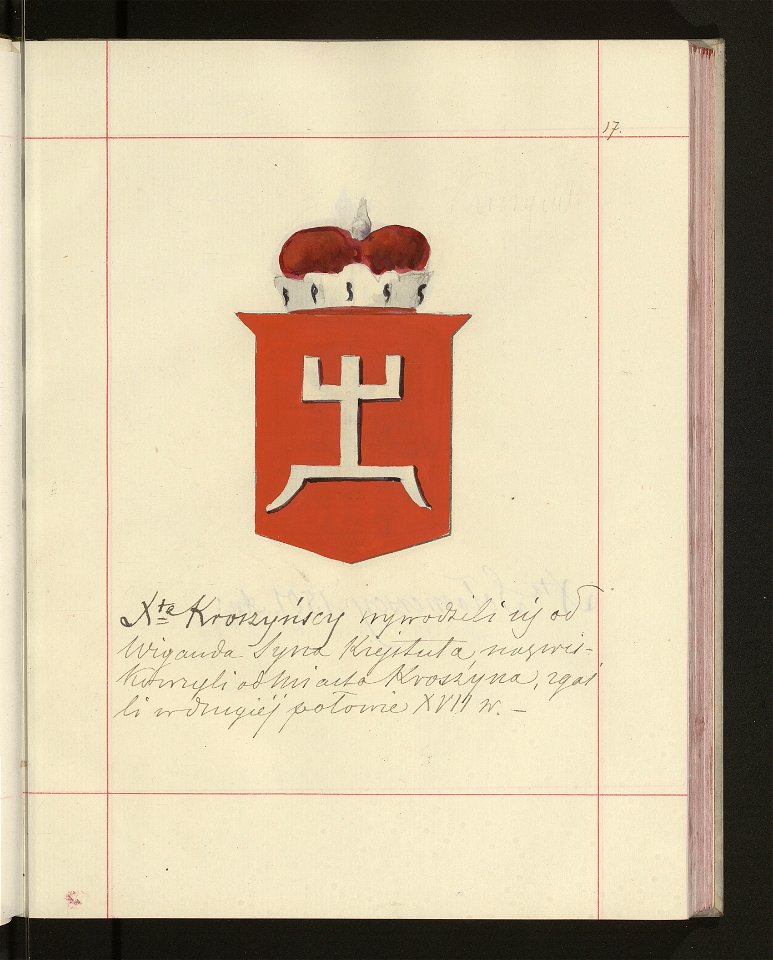 17.
Xta Kroszyńscy wywodzili się od
Wiganda Syna Kiejstuta, nazwis-
ko wzięli od miasta Kroszyna, zgaś
li w drugiéj połowie XVII w. –